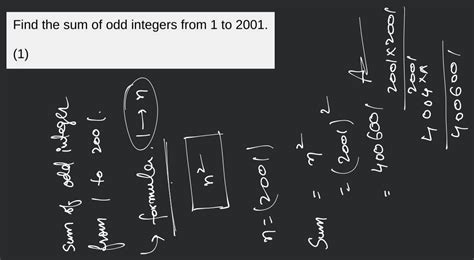 Find the sum of odd integers from 1 to 2001.
(1)
Sum of odd integer
from 1 to 2001.
↳ formula. 1 → n
n²
n = (2001)
Sum = n²
= (2001)²
= 4006001 A
2001 × 2001
2001
4004××
4006001